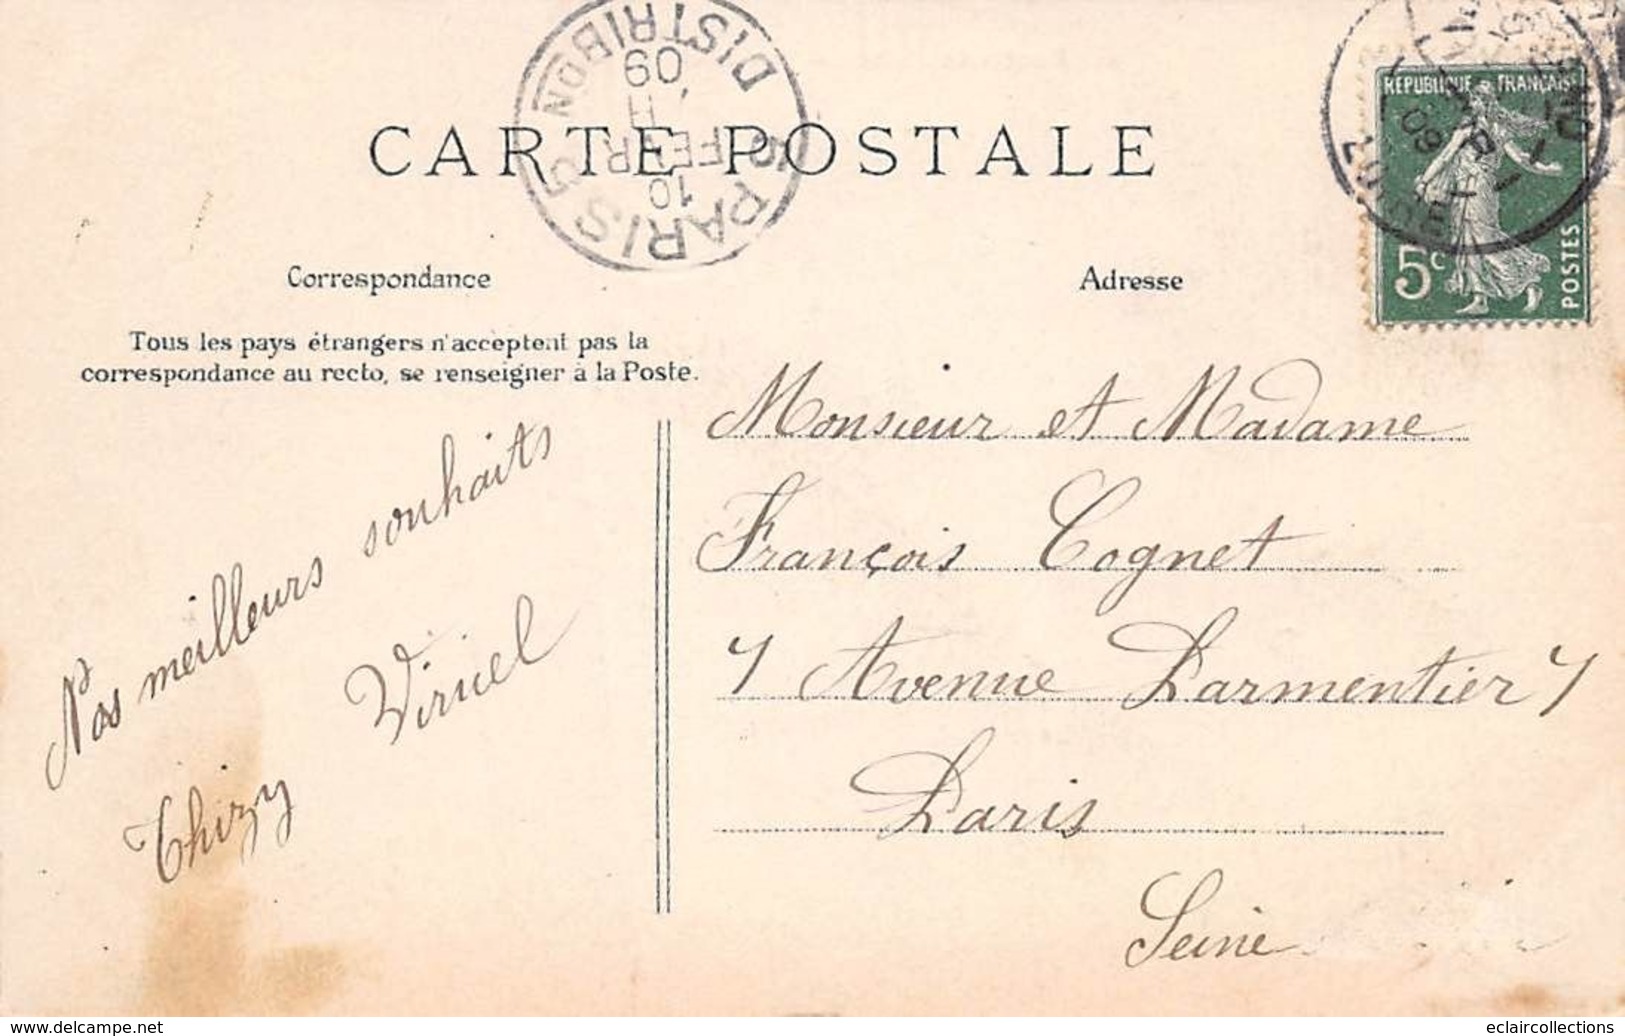 CARTE POSTALE
PARIS 5
DISTRIBON
10
FEVR
09
REPUBLIQUE FRANÇAISE
5c
POSTES
Correspondance
Adresse
Tous les pays étrangers n'acceptent pas la
correspondance au recto, se renseigner à la Poste.
Nos meilleurs souhaits
Viruel
Thizy
Monsieur et Madame
François Cognet
7 Avenue Parmentier 7
Paris
Seine
www.delcampe.net
eclaircollections